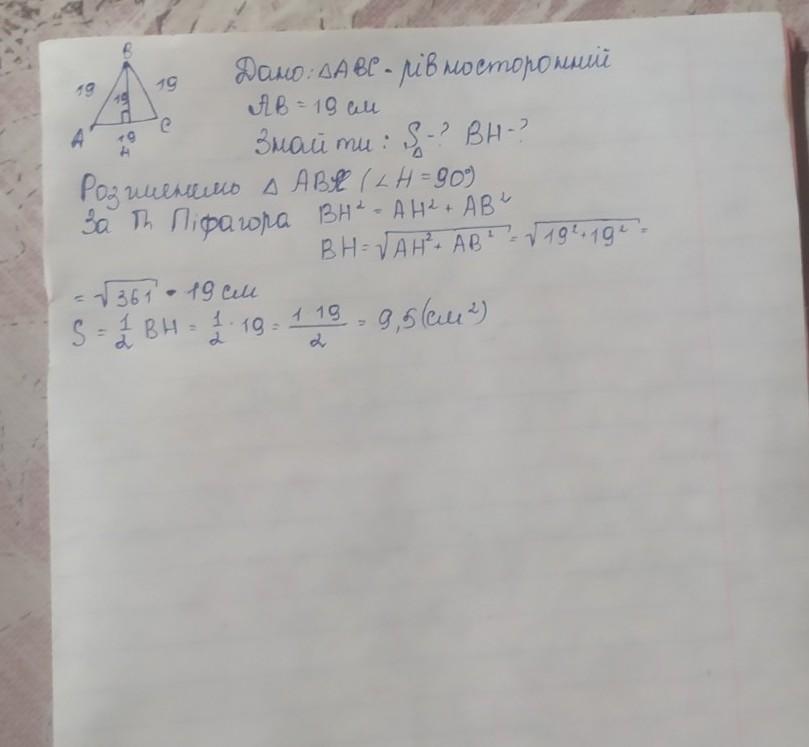 B
19 19 19
A 19 C
H
Дано: △ABC - рівносторонній
AB = 19 см
Знайти: S△ - ? BH - ?
Розглянемо △ ABH (∠H = 90°)
За Th Піфагора BH² = AH² + AB²
BH = √AH² + AB² = √19² + 19² =
= √361 = 19 см
S = 1/2 BH = 1/2 · 19 = 1 · 19/2 = 9,5 (см²)